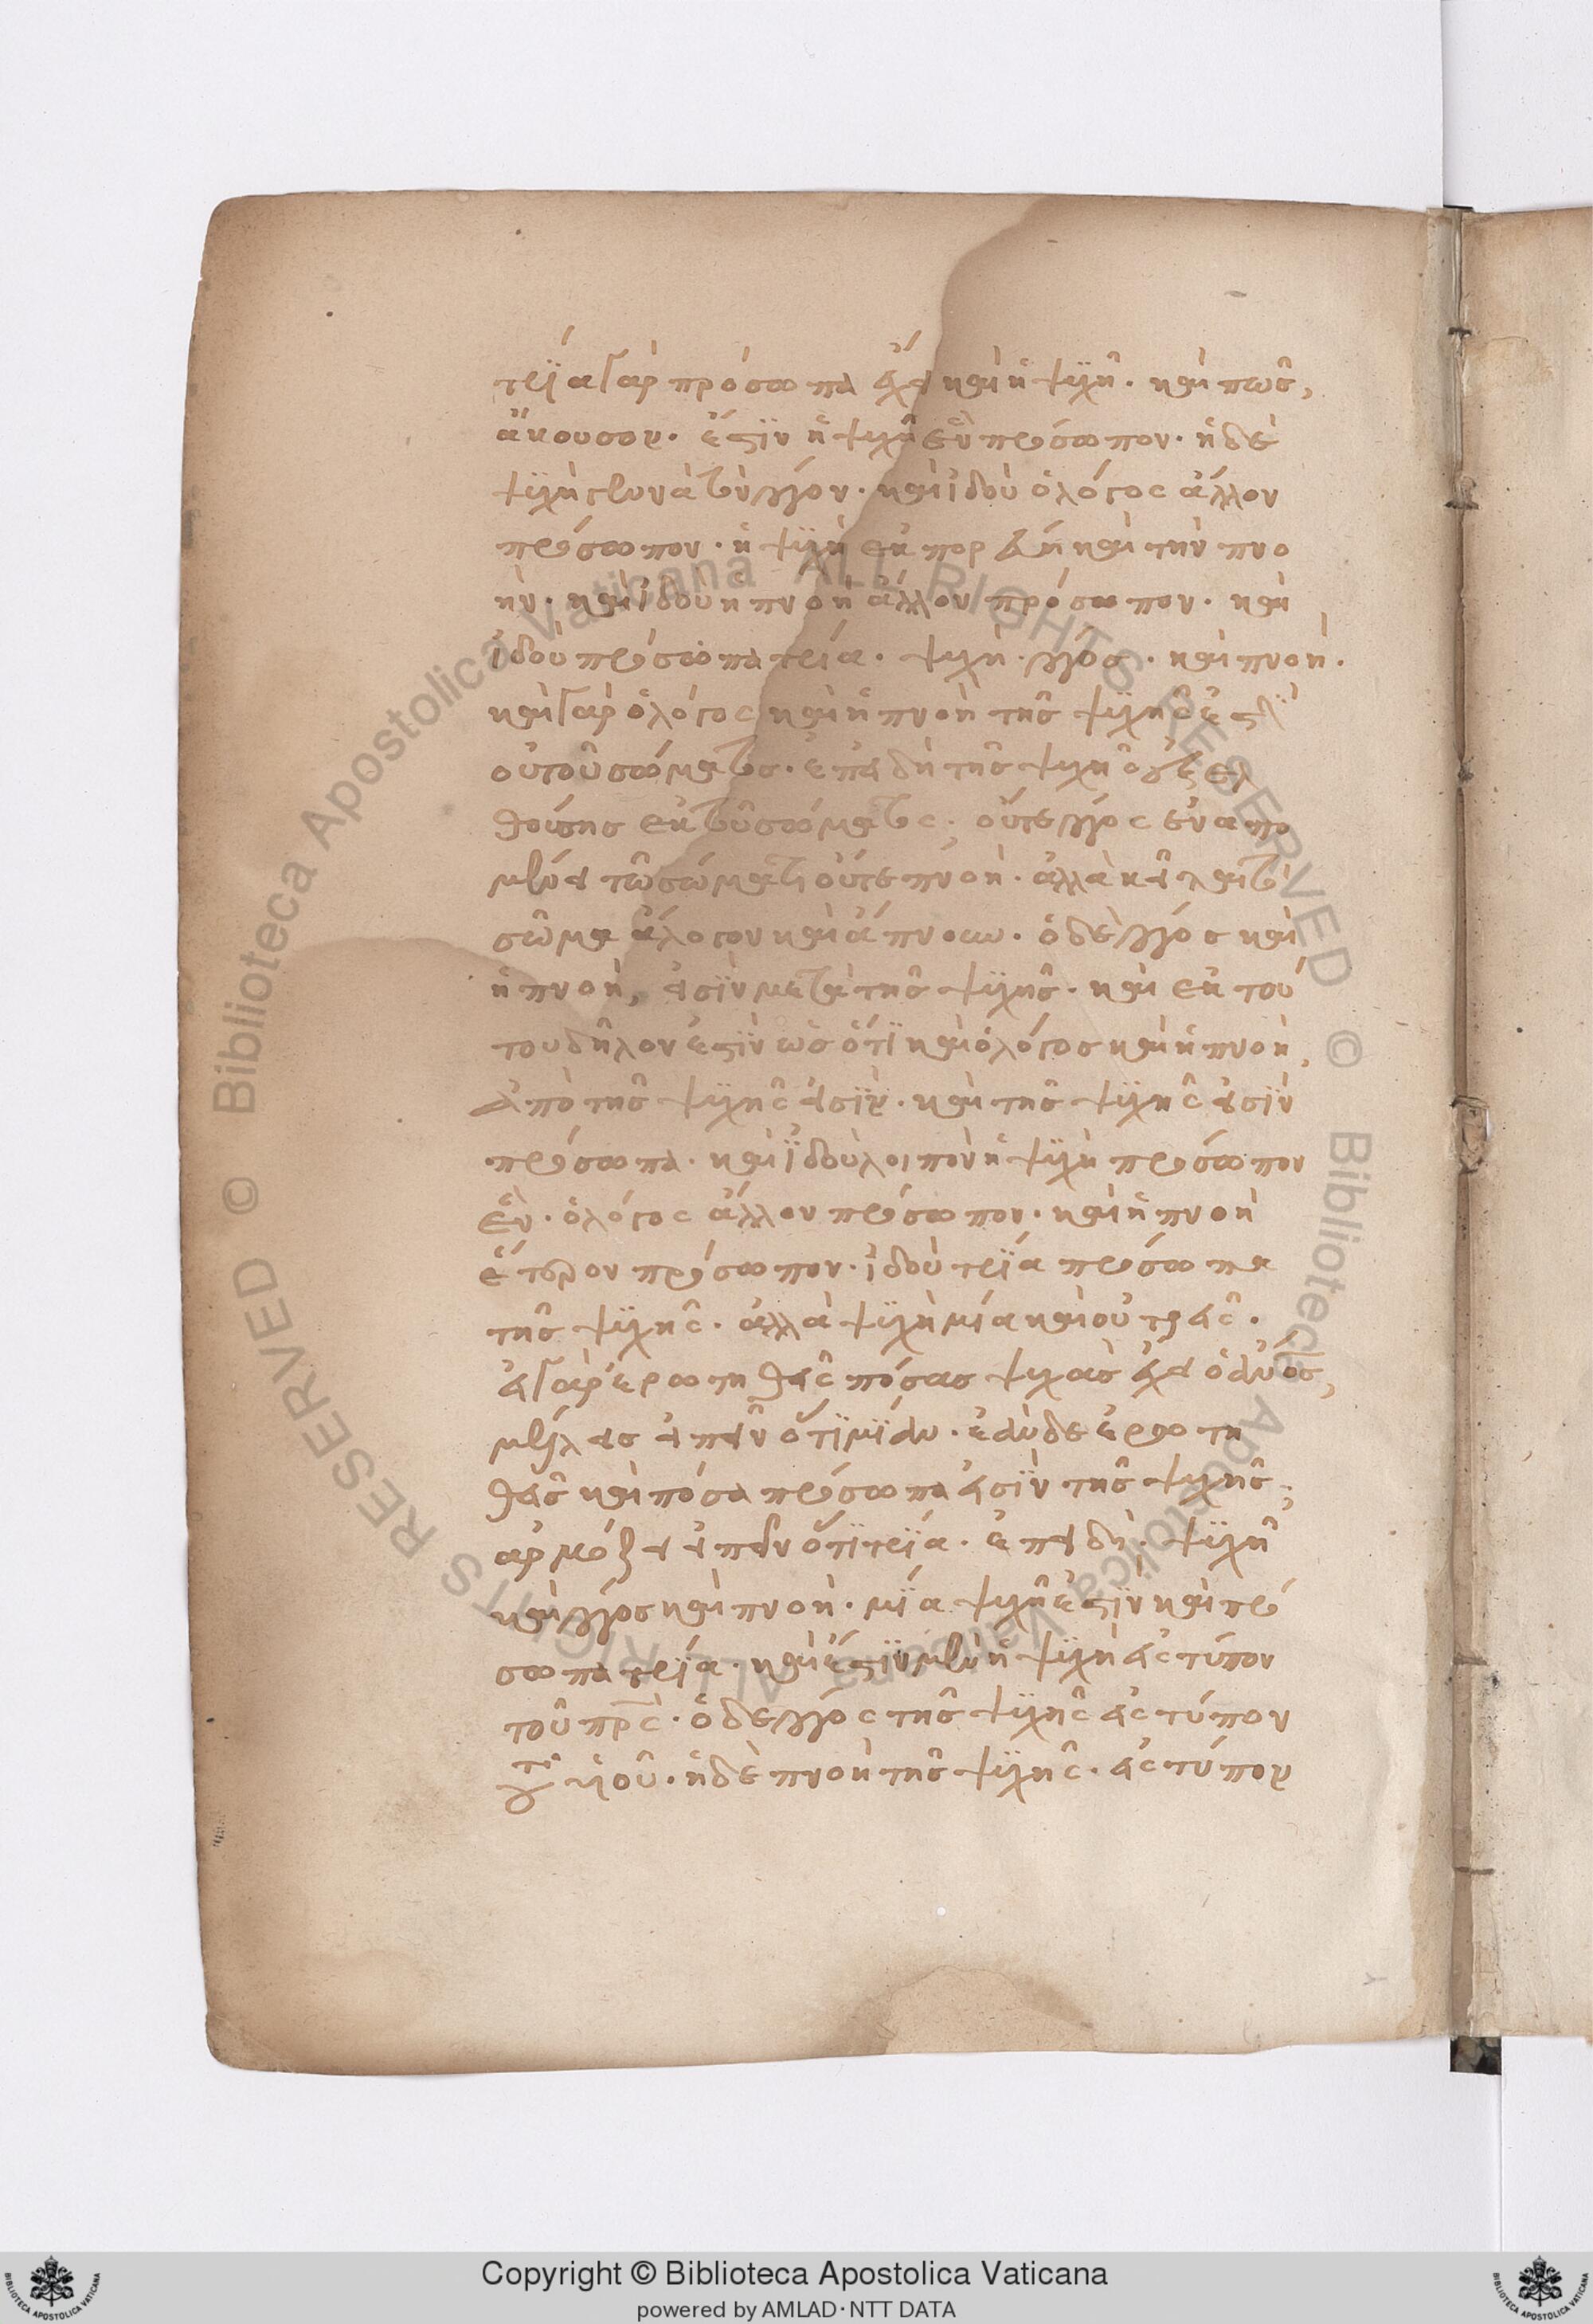 τρία γὰρ πρόσωπα ἔχει καὶ ἡ ψυχῆ. καὶ πῶς,
ἄκουσον. ἔστιν ἡ ψυχῆ ἓν πρόσωπον. ἡ δὲ
ψυχὴ γεννᾶ τὸν λόγον. καὶ ἰδοὺ ὁ λόγος ἄλλον
πρόσωπον. ἡ ψυχὴ ἐκπορεύει καὶ τὴν πνο
ὴν. καὶ ἰδοὺ ἡ πνοὴ ἄλλον πρόσωπον. καὶ
ἰδοὺ πρόσωπα τρία. ψυχὴ. λόγος. καὶ πνοὴ.
καὶ γὰρ ὁ λόγος καὶ ἡ πνοὴ τῆς ψυχῆς ἐστὶ
οὐ τοῦ σώματος. ἐπειδὴ τῆς ψυχῆς ἐξελ
θούσης ἐκ τοῦ σώματος. οὔτε λόγος ἐναπο
μένει τῶ σώματι οὔτε πνοὴ. ἀλλὰ κεῖται τὸ
σῶμα ἄλογον καὶ ἄπνοων. ὁ δὲ λόγος καὶ
ἡ πνοὴ, εἰσὶν μετὰ τῆς ψυχῆς. καὶ ἐκ τού
του δῆλον ἐστὶν ὡς ὅτι καὶ ὁ λόγος καὶ ἡ πνοὴ,
ἀπὸ τῆς ψυχῆς εἰσὶν. καὶ τῆς ψυχῆς εἰσὶν
πρόσωπα. καὶ ἰδοὺ λοιπὸν ἡ ψυχὴ πρόσωπον
ἓν. ὁ λόγος ἄλλον πρόσωπον. καὶ ἡ πνοὴ
ἕτερον πρόσωπον. ἰδοὺ τρία πρόσωπα
τῆς ψυχῆς. ἀλλὰ ψυχὴ μία καὶ οὐ τρεῖς.
εἰ γὰρ ἐρωτηθεῖς πόσας ψυχὰς ἔχει ὁ ἄνος,
μέλλεις εἰπεῖν ὅτι μίαν. ἐὰν δὲ ἐρωτη
θεῖς καὶ πόσα πρόσωπα εἰσὶν τῆς ψυχῆς.
ἁρμόζει εἰπεῖν ὅτι τρία. ἐπειδὴ. ψυχῆ
καὶ λόγος καὶ πνοὴ. μία ψυχῆ ἐστὶν καὶ πρό
σωπα τρία. καὶ ἔστιν μὲν ἡ ψυχὴ εἰς τύπον
τοῦ πρς. ὁ δὲ λόγος τῆς ψυχῆς εἰς τύπον
τοῦ υἱοῦ. ἡ δὲ πνοὴ τῆς ψυχῆς. εἰς τύπον
Copyright © Biblioteca Apostolica Vaticana
powered by AMLAD·NTT DATA